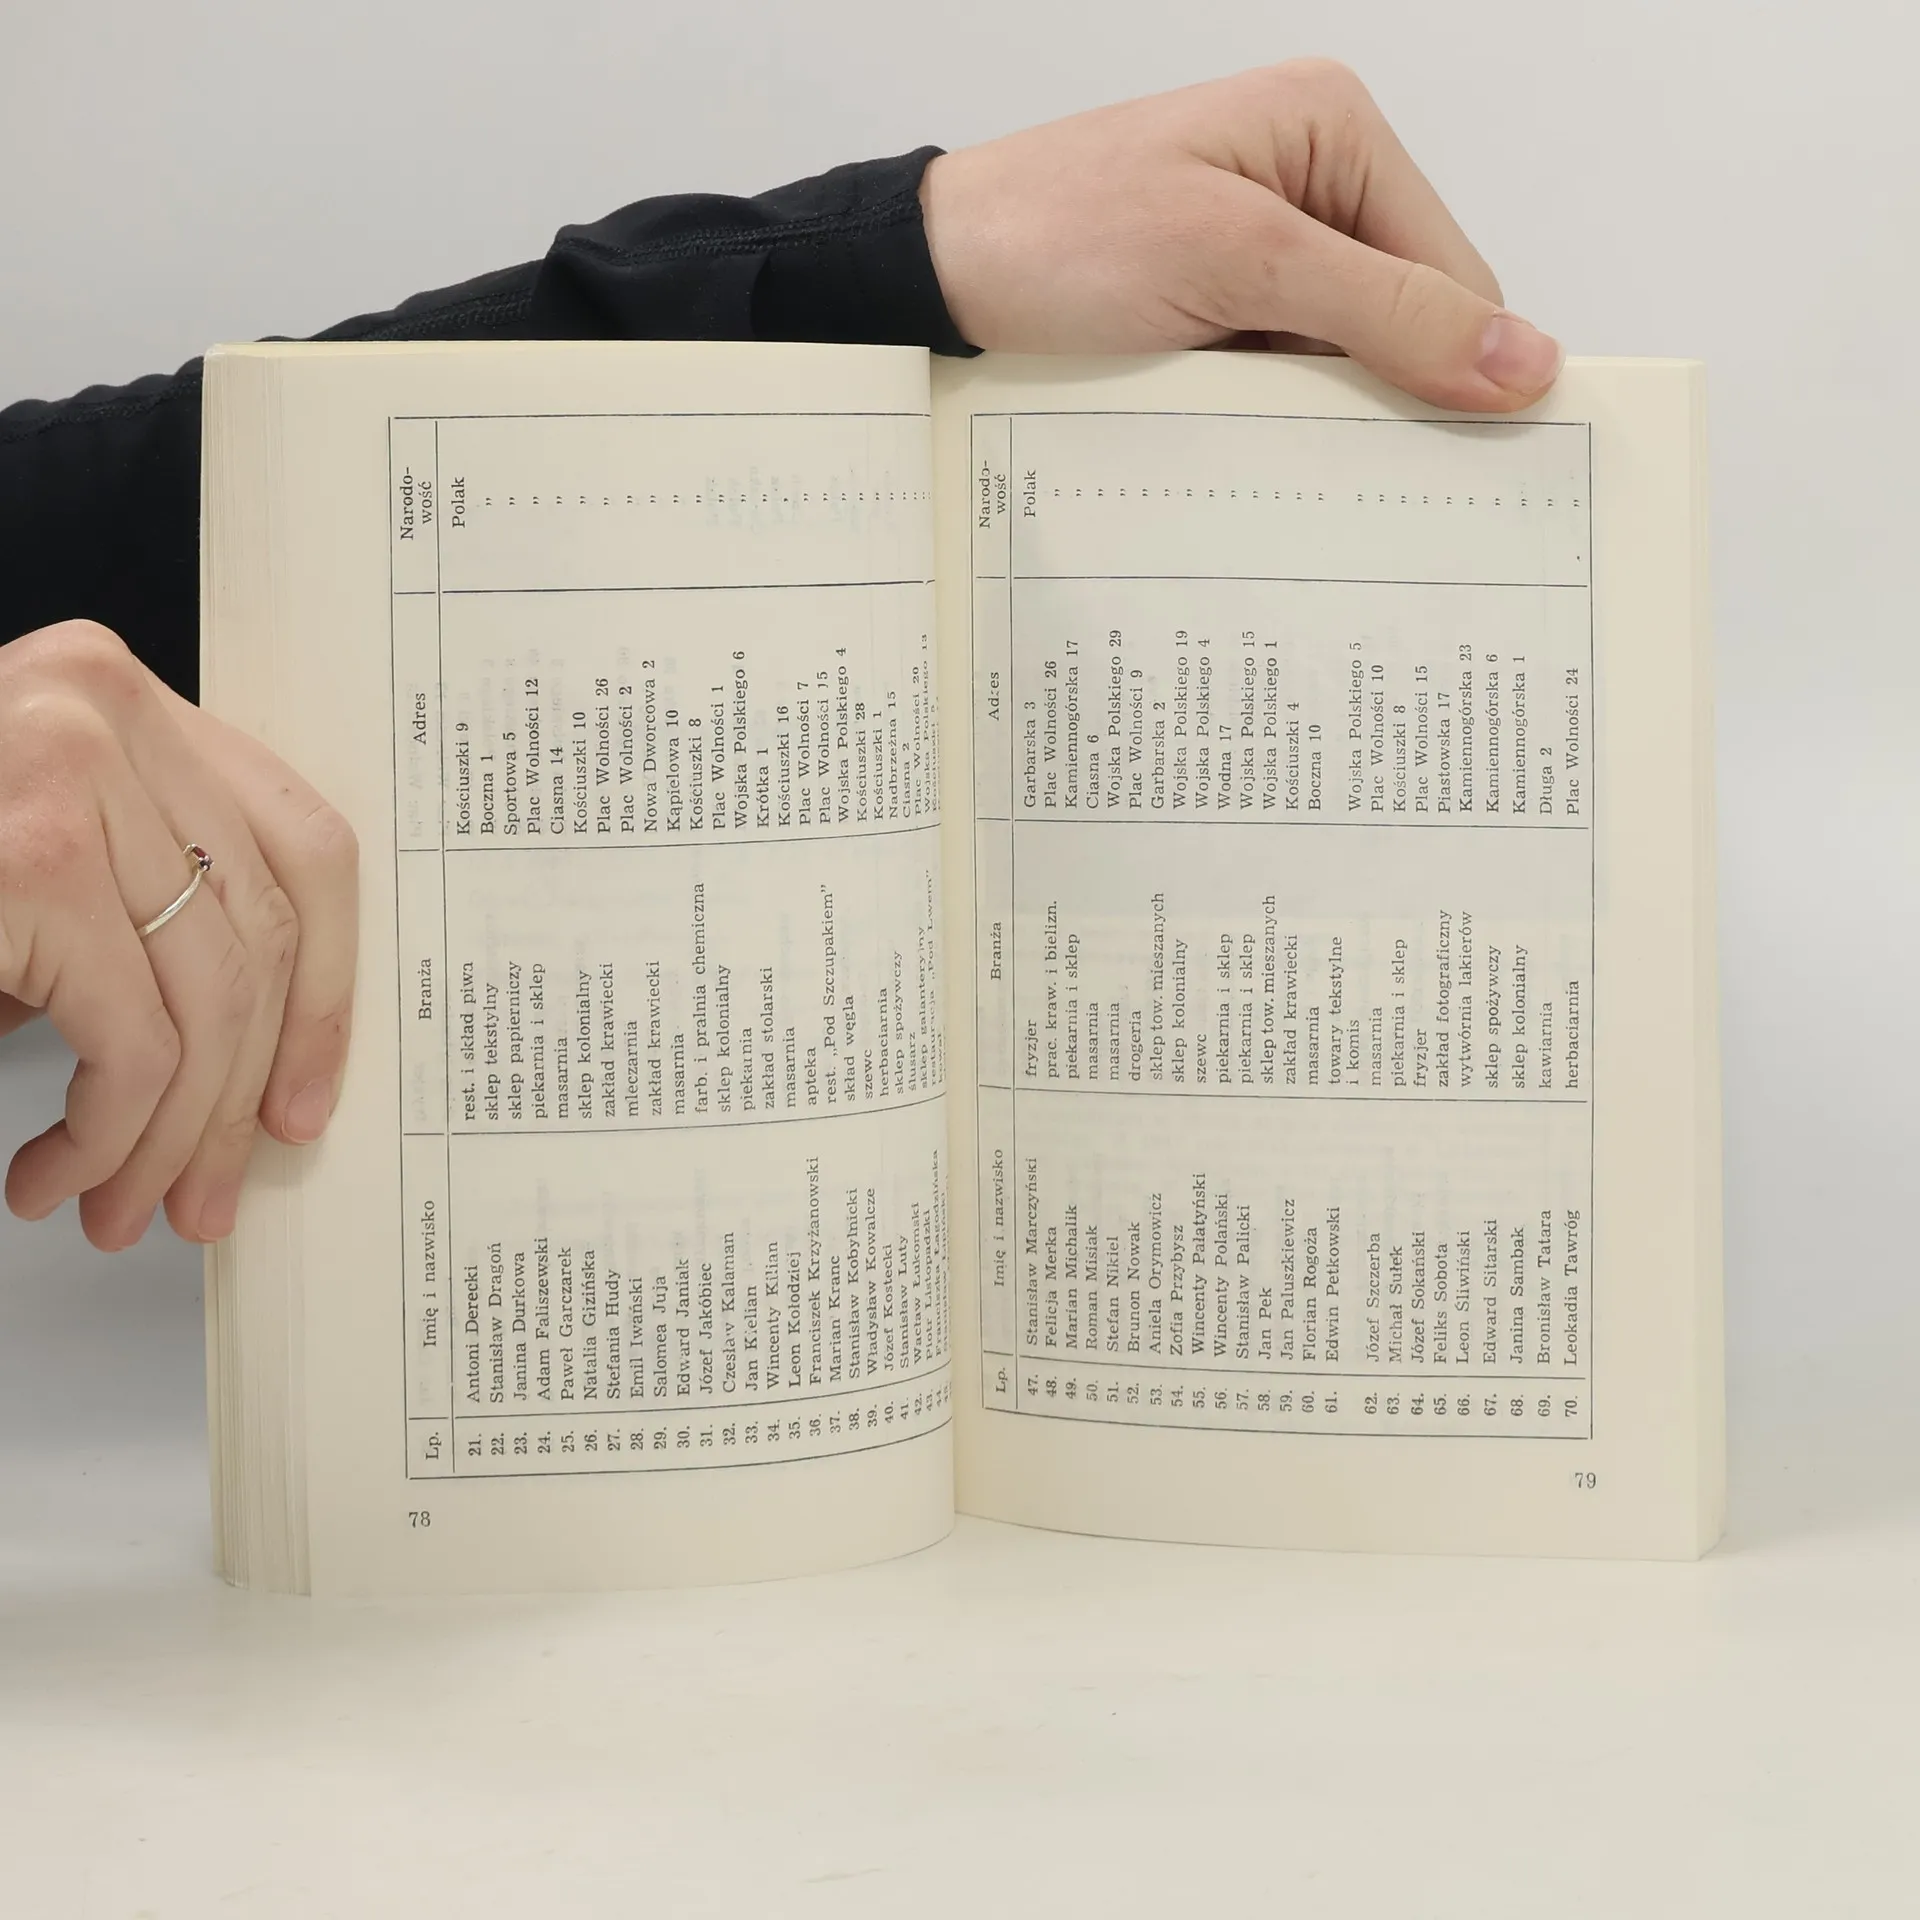 Lp. Imię i nazwisko Branża Adres Narodo-
wość
21. Antoni Derecki rest. i skład piwa Kościuszki 9 Polak
22. Stanisław Dragoń sklep tekstylny Boczna 1 „
23. Janina Durkowa sklep papierniczy Sportowa 5 „
24. Adam Faliszewski piekarnia i sklep Plac Wolności 12 „
25. Paweł Garczarek masarnia Ciasna 14 „
26. Natalia Gizińska sklep kolonialny Kościuszki 10 „
27. Stefania Hudy zakład krawiecki Plac Wolności 26 „
28. Emil Iwański mleczarnia Plac Wolności 2 „
29. Salomea Juja zakład krawiecki Nowa Dworcowa 2 „
30. Edward Janiak masarnia Kąpielowa 10 „
31. Józef Jakóbiec farb. i pralnia chemiczna Kościuszki 8 „
32. Czesław Kalaman sklep kolonialny Plac Wolności 1 „
33. Jan Kielian piekarnia Wojska Polskiego 6 „
34. Wincenty Kilian zakład stolarski Krótka 1 „
35. Leon Kołodziej masarnia Kościuszki 16 „
36. Franciszek Krzyżanowski apteka Plac Wolności 7 „
37. Marian Kranc rest. „Pod Szczupakiem” Plac Wolności 15 „
38. Stanisław Kobylnicki skład węgla Wojska Polskiego 4 „
39. Władysław Kowalcze szewc Kościuszki 28 „
40. Józef Kostecki herbaciarnia Kościuszki 1 „
41. Stanisław Luty sklep spożywczy Nadbrzeżna 15 „
42. Wacław Łukomski ślusarz Ciasna 2 „
43. Piotr Listopadzki sklep galanteryjny Plac Wolności 20 „
44. Franciszka Łagodzińska restauracja „Pod Lwem” Wojska Polskiego 13 „
78
Lp. Imię i nazwisko Branża Adres Narodo-
wość
47. Stanisław Marczyński fryzjer Garbarska 3 Polak
48. Felicja Merka prac. kraw. i bielizn. Plac Wolności 26 „
49. Marian Michalik piekarnia i sklep Kamiennogórska 17 „
50. Roman Misiak masarnia Ciasna 6 „
51. Stefan Nikiel masarnia Wojska Polskiego 29 „
52. Brunon Nowak drogeria Plac Wolności 9 „
53. Aniela Orymowicz sklep tow. mieszanych Garbarska 2 „
54. Zofia Przybysz sklep kolonialny Wojska Polskiego 19 „
55. Wincenty Pałatyński szewc Wojska Polskiego 4 „
56. Wincenty Polański piekarnia i sklep Wodna 17 „
57. Stanisław Palicki piekarnia i sklep Wojska Polskiego 15 „
58. Jan Pek sklep tow. mieszanych Wojska Polskiego 1 „
59. Jan Paluszkiewicz zakład krawiecki Kościuszki 4 „
60. Florian Rogoża masarnia Boczna 10 „
61. Edwin Petkowski towary tekstylne
i komis Wojska Polskiego 5 „
62. Józef Szczerba masarnia Plac Wolności 10 „
63. Michał Sułek piekarnia i sklep Kościuszki 8 „
64. Józef Sokański fryzjer Plac Wolności 15 „
65. Feliks Sobota zakład fotograficzny Piastowska 17 „
66. Leon Śliwiński wytwórnia lakierów Kamiennogórska 23 „
67. Edward Sitarski sklep spożywczy Kamiennogórska 6 „
68. Janina Sambak sklep kolonialny Kamiennogórska 1 „
69. Bronisław Tatara kawiarnia Długa 2 „
70. Leokadia Tawróg herbaciarnia Plac Wolności 24 „
79